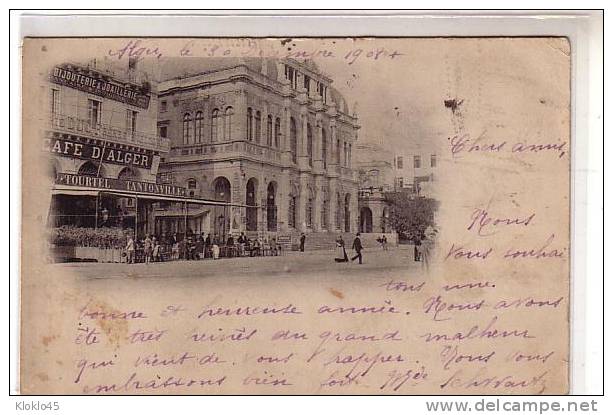 Alger, le 30 Decembre 1904
BIJOUTERIE & JOAILLERIE
CAFE D'ALGER
TOURTEL TANTONVILLE
Chers amis,
Nous
vous souhai
tons une
bonne et heureuse année. Nous avons
été très peinés du grand malheur
qui vient de vous frapper. Nous vous
embrassons bien fort Mme Schwartz
Kloklo45
www.delcampe.net